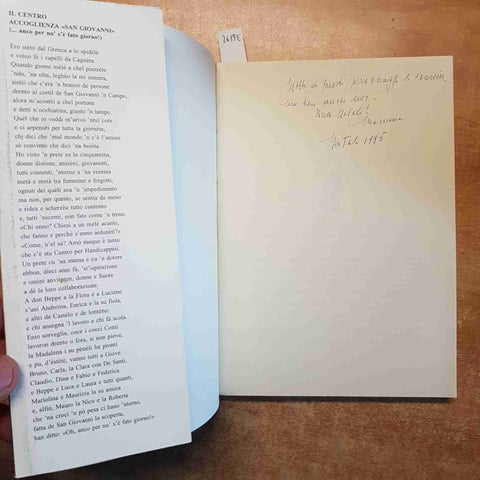 IL CENTRO
ACCOGLIENZA «SAN GIOVANNI»
(... anco per no' s'è fato giorno!)
Ero stèto dal Gresca a lo spidèle
e voleo fè i capelli da Cagnèra.
Quando gionsi mèlè a chel piazzèle
'ndu, 'na olta, leghèo la mi somèra,
sintii che c'era 'n branco de persone
drento al cortil de San Giovanni 'n Campo,
alora m'acostèi a chel portone
e detti n'occhiatina, giusto 'n lampo.
Quel che io veddi m'arivò 'ntul core
e ci arpensèi per tutta la giornèta;
chj dici che 'ntul mondo n c'è l'amore
sò convinto che dici 'na bojèta.
Ho visto 'n prete su la cinquantina,
donne distinte, anzièni, giovanotti,
tutti contenti, 'ntorno a 'na ventina
metà e metà tra femmine e fregotti,
ognun dei quèli aea 'n 'impedimento
ma non, per questo, se sentia da meno
e ridea e scherzèa tutto contento
e, tutti 'nscemi, eon fato come 'n treno.
«Chi enno? Chiesi a un melè acanto,
che fanno e perchè s'enno ardunèti?»
«Come, n'el sà? Amò meque è tanto
che c'è stu Centro per Handicappèti.
Un prete cu 'na mama e cu 'n dotore
ebbon, dieci anni fà, 'st'ispirazione
e omini anvitron, donne e Suore
a dè la loro collaborazione.
A don Beppe a la Flora e a Lucièno
s'unì Andreina, Enrica e la su fiola,
e altri de Castèlo e de lontèno:
e chi ansegna 'l lavoro e chi fà scola.
Enio sorveglia, coce i cocci Conti
la Madalena i su penèli ha pronti
lavoron drento o fora, si non piove,
e pu, d'éstètè, vanno tutti a Giove.
Bruno, Carla, la Clara con De Santi,
Claudio, Dina e Fabio e Federica
e Beppe e Luca e Laura e tutti quanti,
Mariolina e Maurizia la su amica
e, alfin, Mauro la Nico e la Roberta
che 'na croci 'n pò pesa ci hano 'ntorno,
fatta de San Giovanni la scoperta,
han ditto: «Oh, anco per no' s'è fato giorno!»
anche noi.
Natale 1995